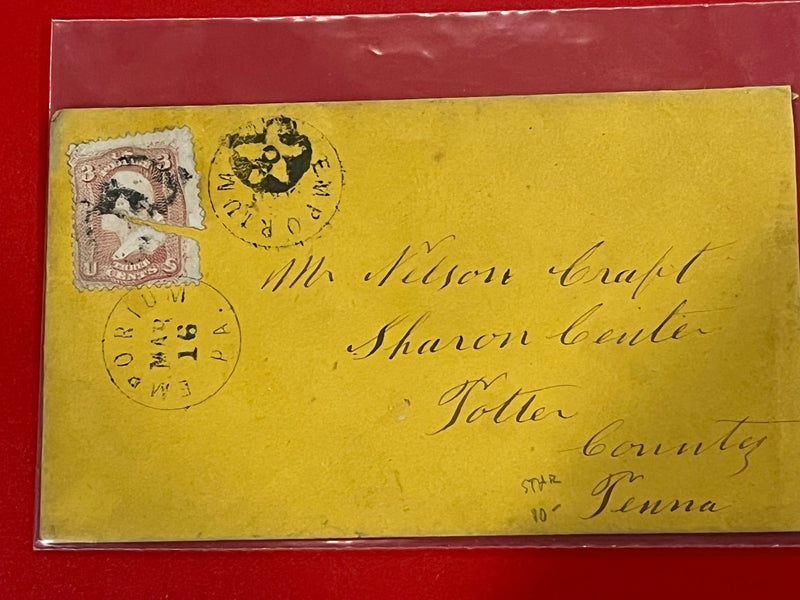 3 3
U S
CENTS
EMPORIUM
EMPORIUM PA.
MAR
16
Mr Nelson Craft
Sharon Center
Potter
County
Penna
STAR
10